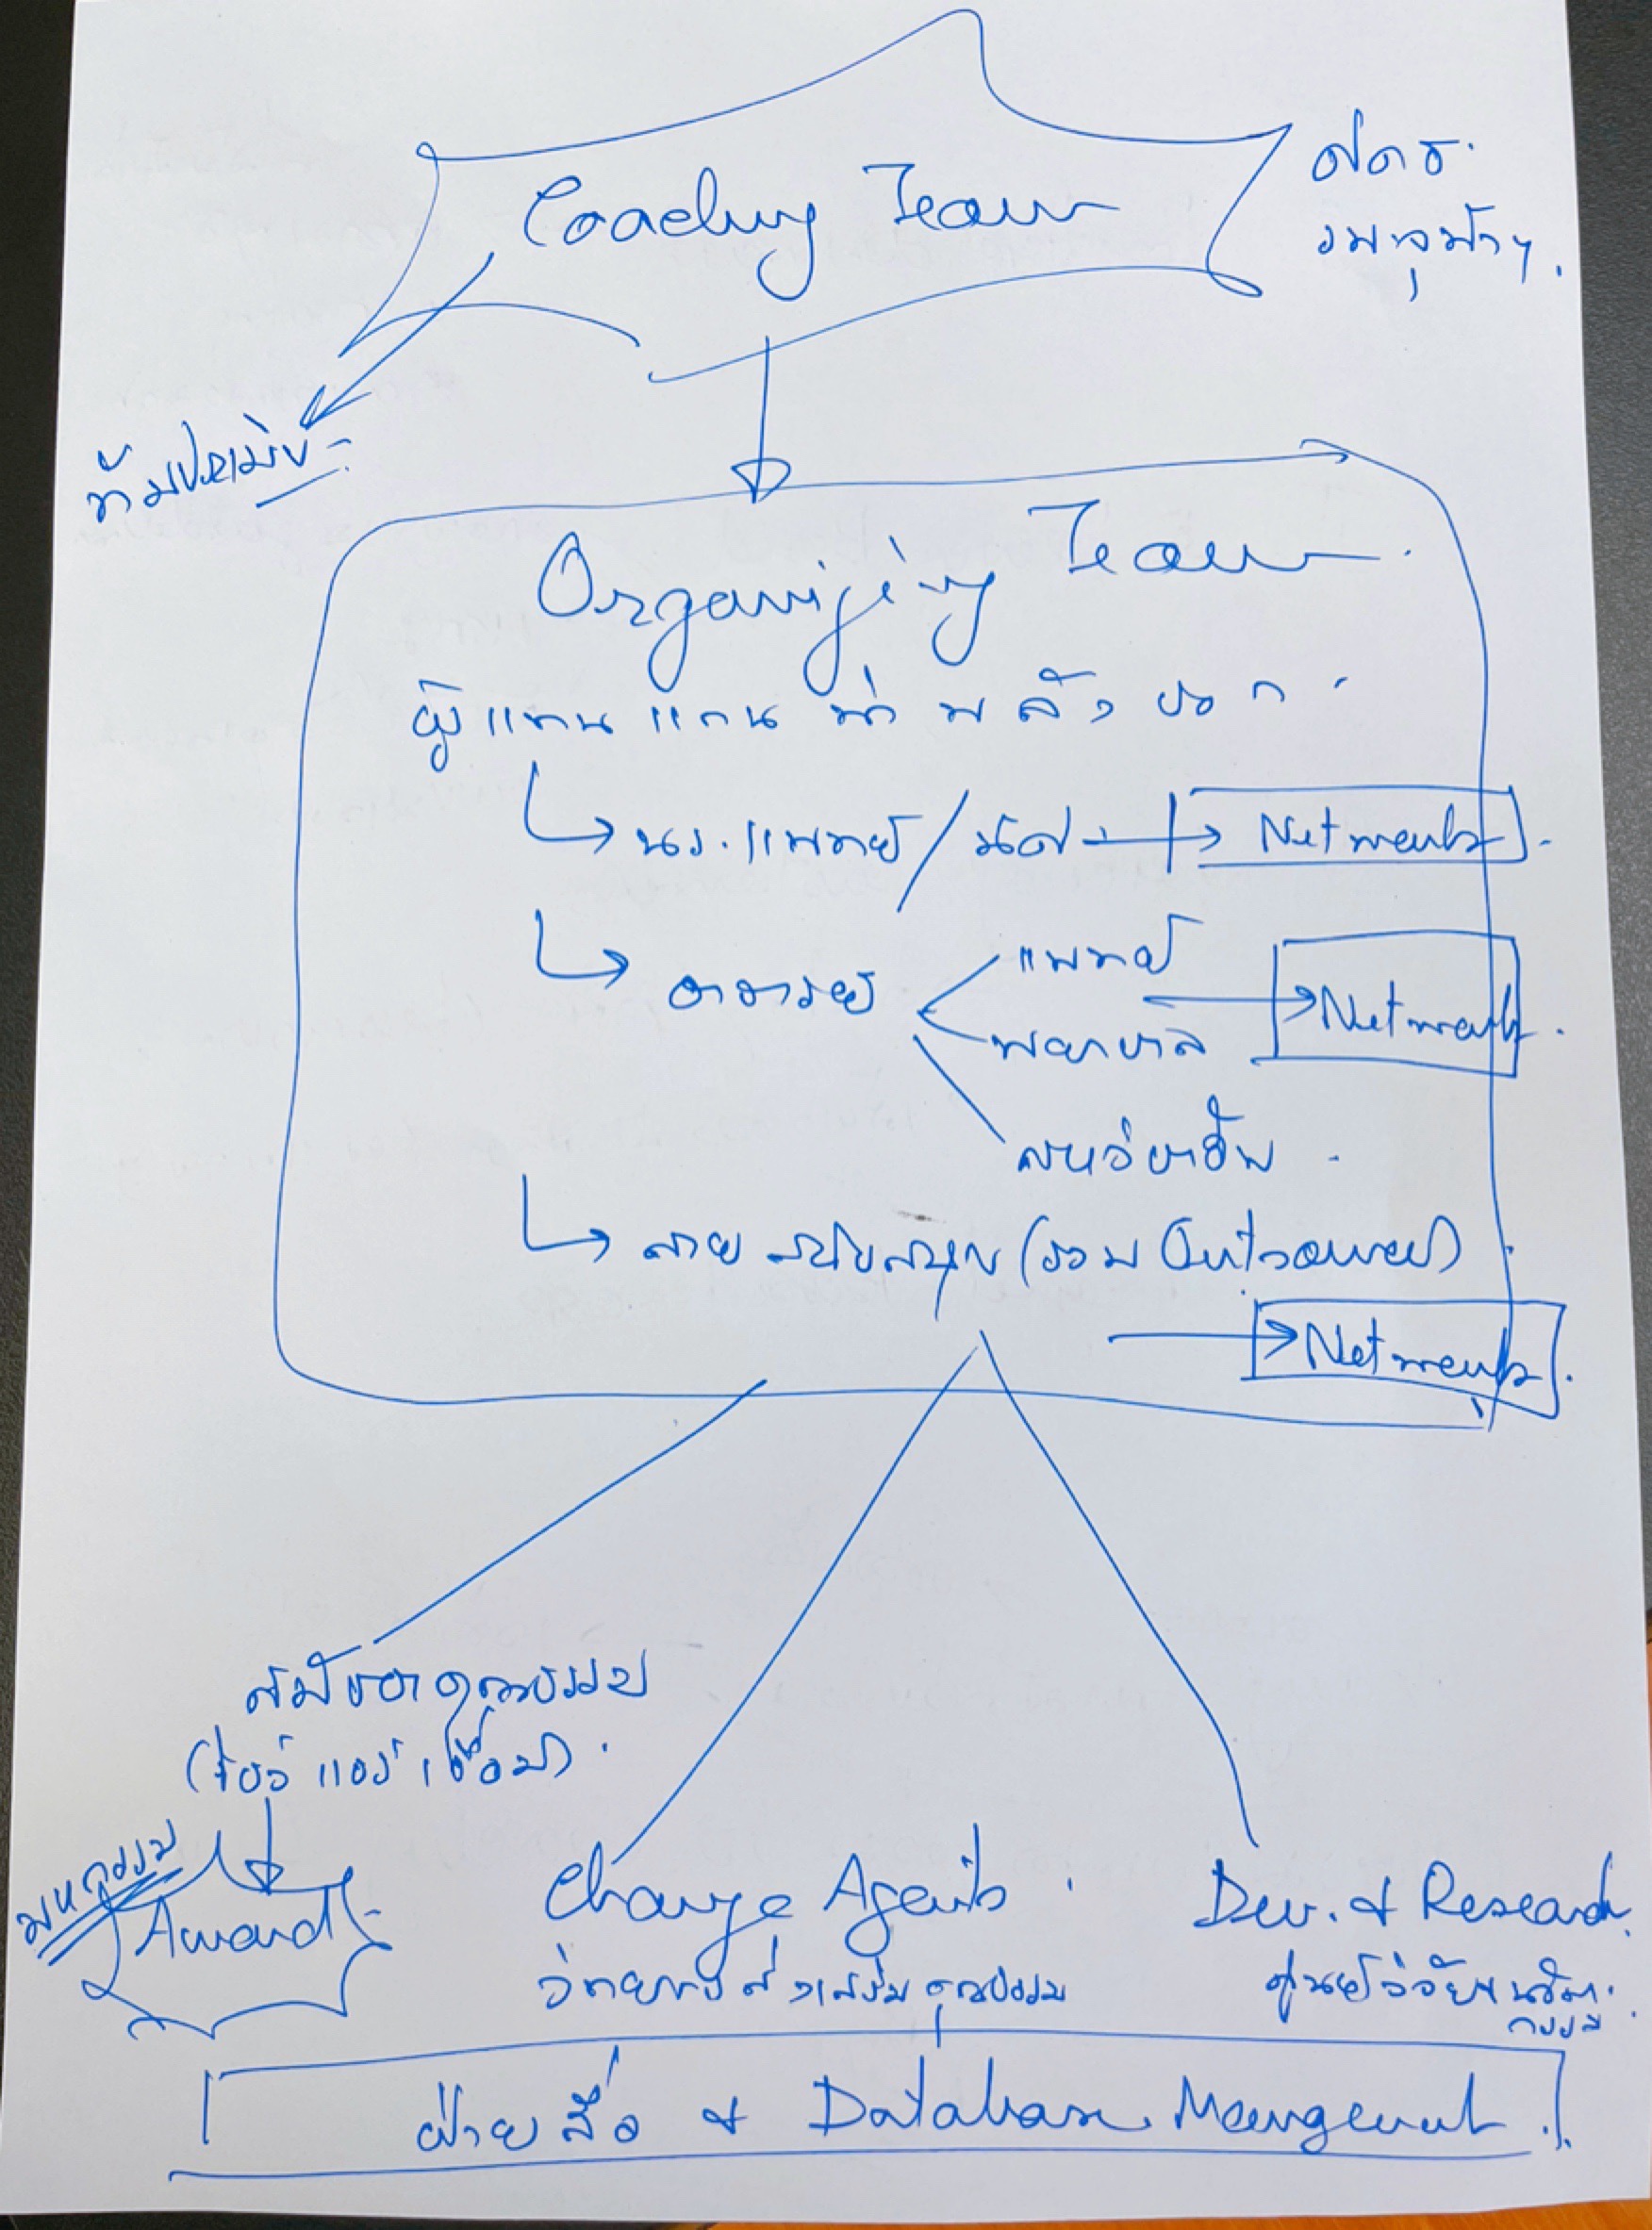 Coaching Team
ศคธ.
รพ.จุฬาฯ.
ทีมประเมิน
Organizing Team
ผู้แทนแกนนำพลังบวก
นร.แพทย์/นิสิต → Network
อาจารย์
แพทย์
→ Network
พยาบาล
สหวิชาชีพ
สายสนับสนุน (รวม Outsource)
→ Network
สมัชชาคุณธรรม
(โชว์ แชร์ เชื่อม)
มหกรรม
Award
Change Agents
วิทยากรส่งเสริมคุณธรรม
Dev. & Research
ศูนย์วิจัยฯ
ฝ่ายสื่อ & Database Management